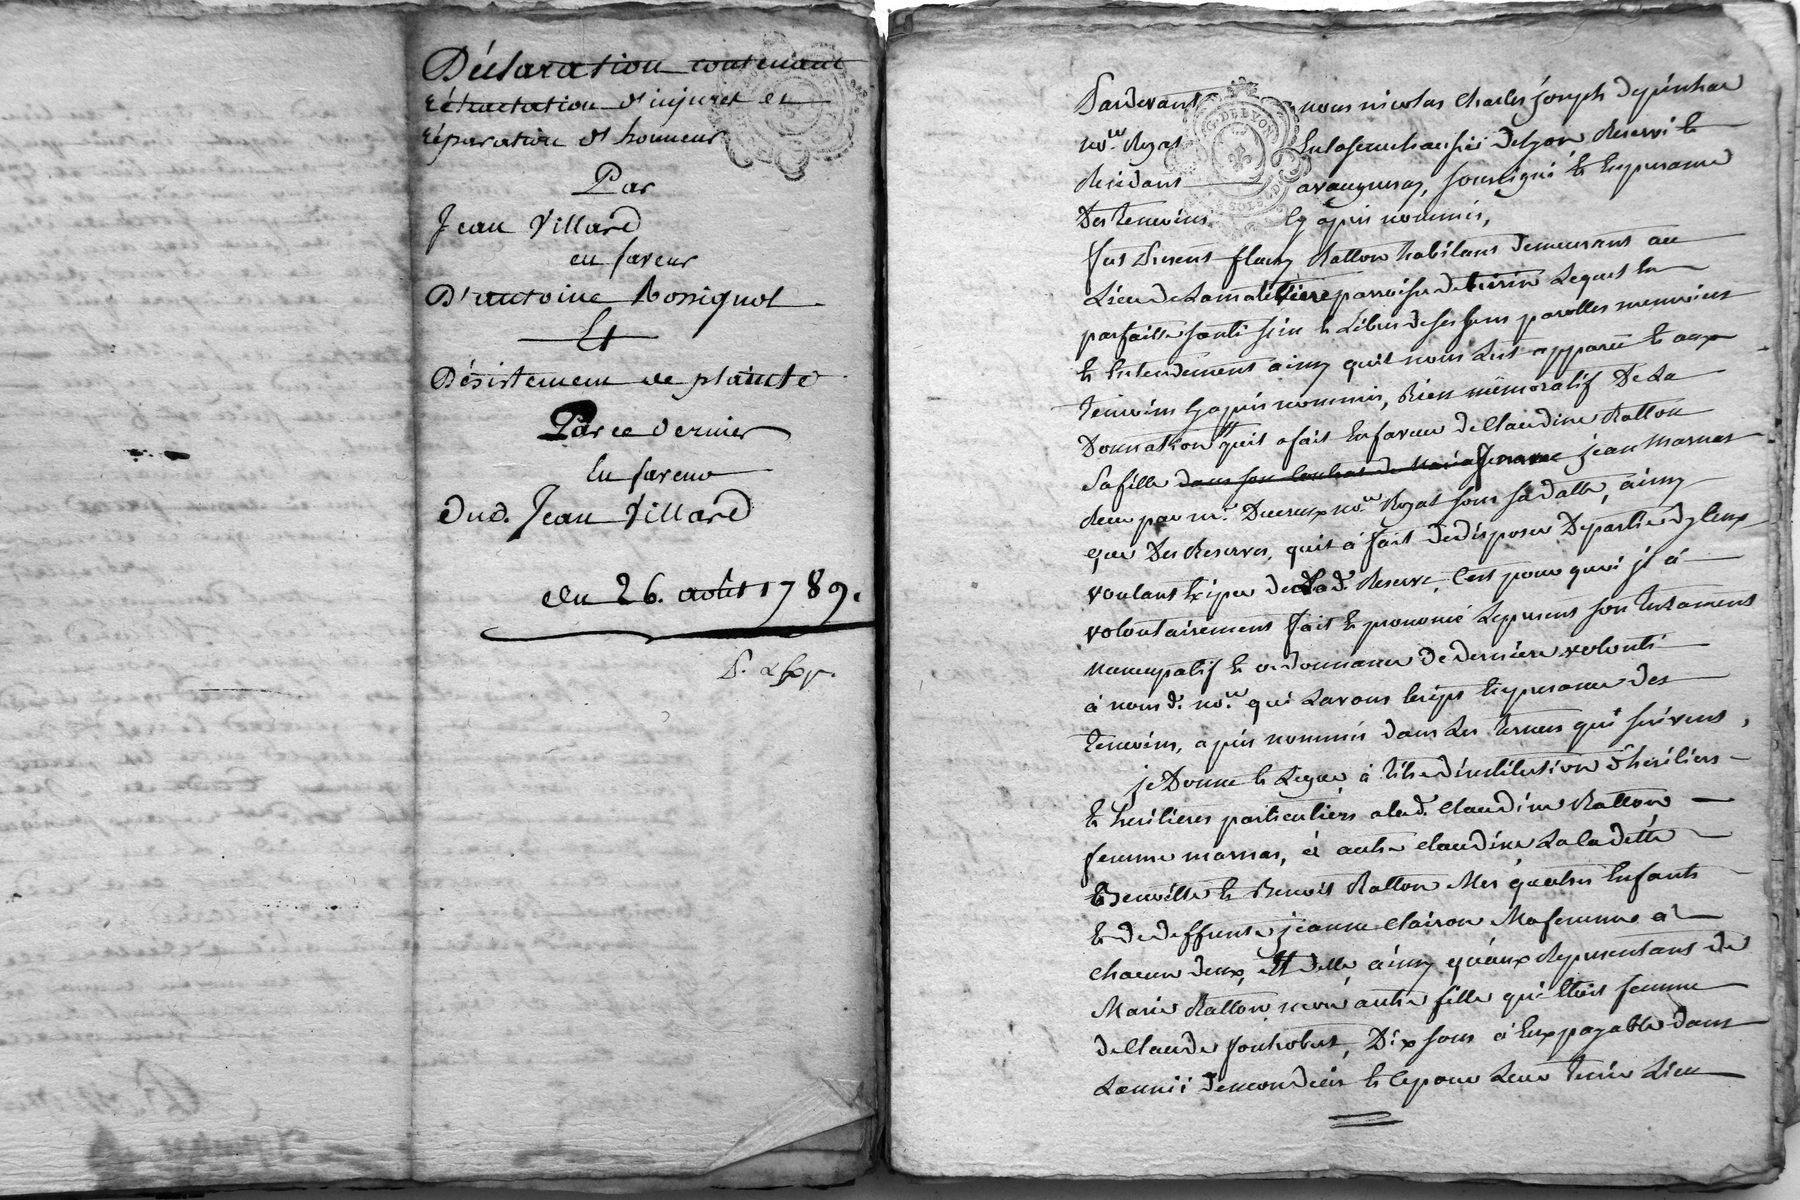 Déclaration contenant
rétractation d'injures et
réparation d'honneur
Par
Jean Villard
en faveur
D'antoine Rossignol
Et
Désistement de plainte
Par ce dernier
En faveur
dud. Jean Villard
du 26. août 1789.
Pardevant nous nicolas Charles joseph
no.re Royal En la senechaussée de Lyon Reservé Et
Residant a vaugneray, soussigné Et En presence
Des temoins Cy après nommés,
fut Present fleury Ratton habitant demeurant au
Lieu de parroisse de Lequel En
parfaitte santé Libre de ses sens parolles memoires
Et Entendement ainsy quil nous Est apparû Et aux
temoins Cy après nommés, Bien mémoratif De La
Donnation quil a fait En faveur de Claudine Ratton
Sa fille dans son Contrat de Mariage jean Marnas
Reçu par m.e no.re Royal sous sa datte, ainsy
que Des Reserves, quil à fait de disposer De partie
voulant de lad. Reserve, C'est pour quoi jl à
volontairement fait Et prononcé Le present son testament
nuncupatif Et ordonnance de derniere volonté
à nous d. no.re qui L'avons En presence des
temoins, après nommés dans Les termes qui suivent,
je Donne Et Legue à titre d'institution d'héritiers
Et heritieres particuliers a lad. Claudine Ratton
femme marnas, à autre Claudine La Cadette
Et Benoit Ratton Mes quatres Enfants
Et de deffunte jeanne Clairon Ma femme à
Chacun d'eux, Et d'elle, ainsy qu'aux Representans de
Marie Ratton mon autre fille qui Etoit femme
de Claude Dix sous à Eux payable dans
L'année de mon decès Et Ce pour Leur tenir Lieu